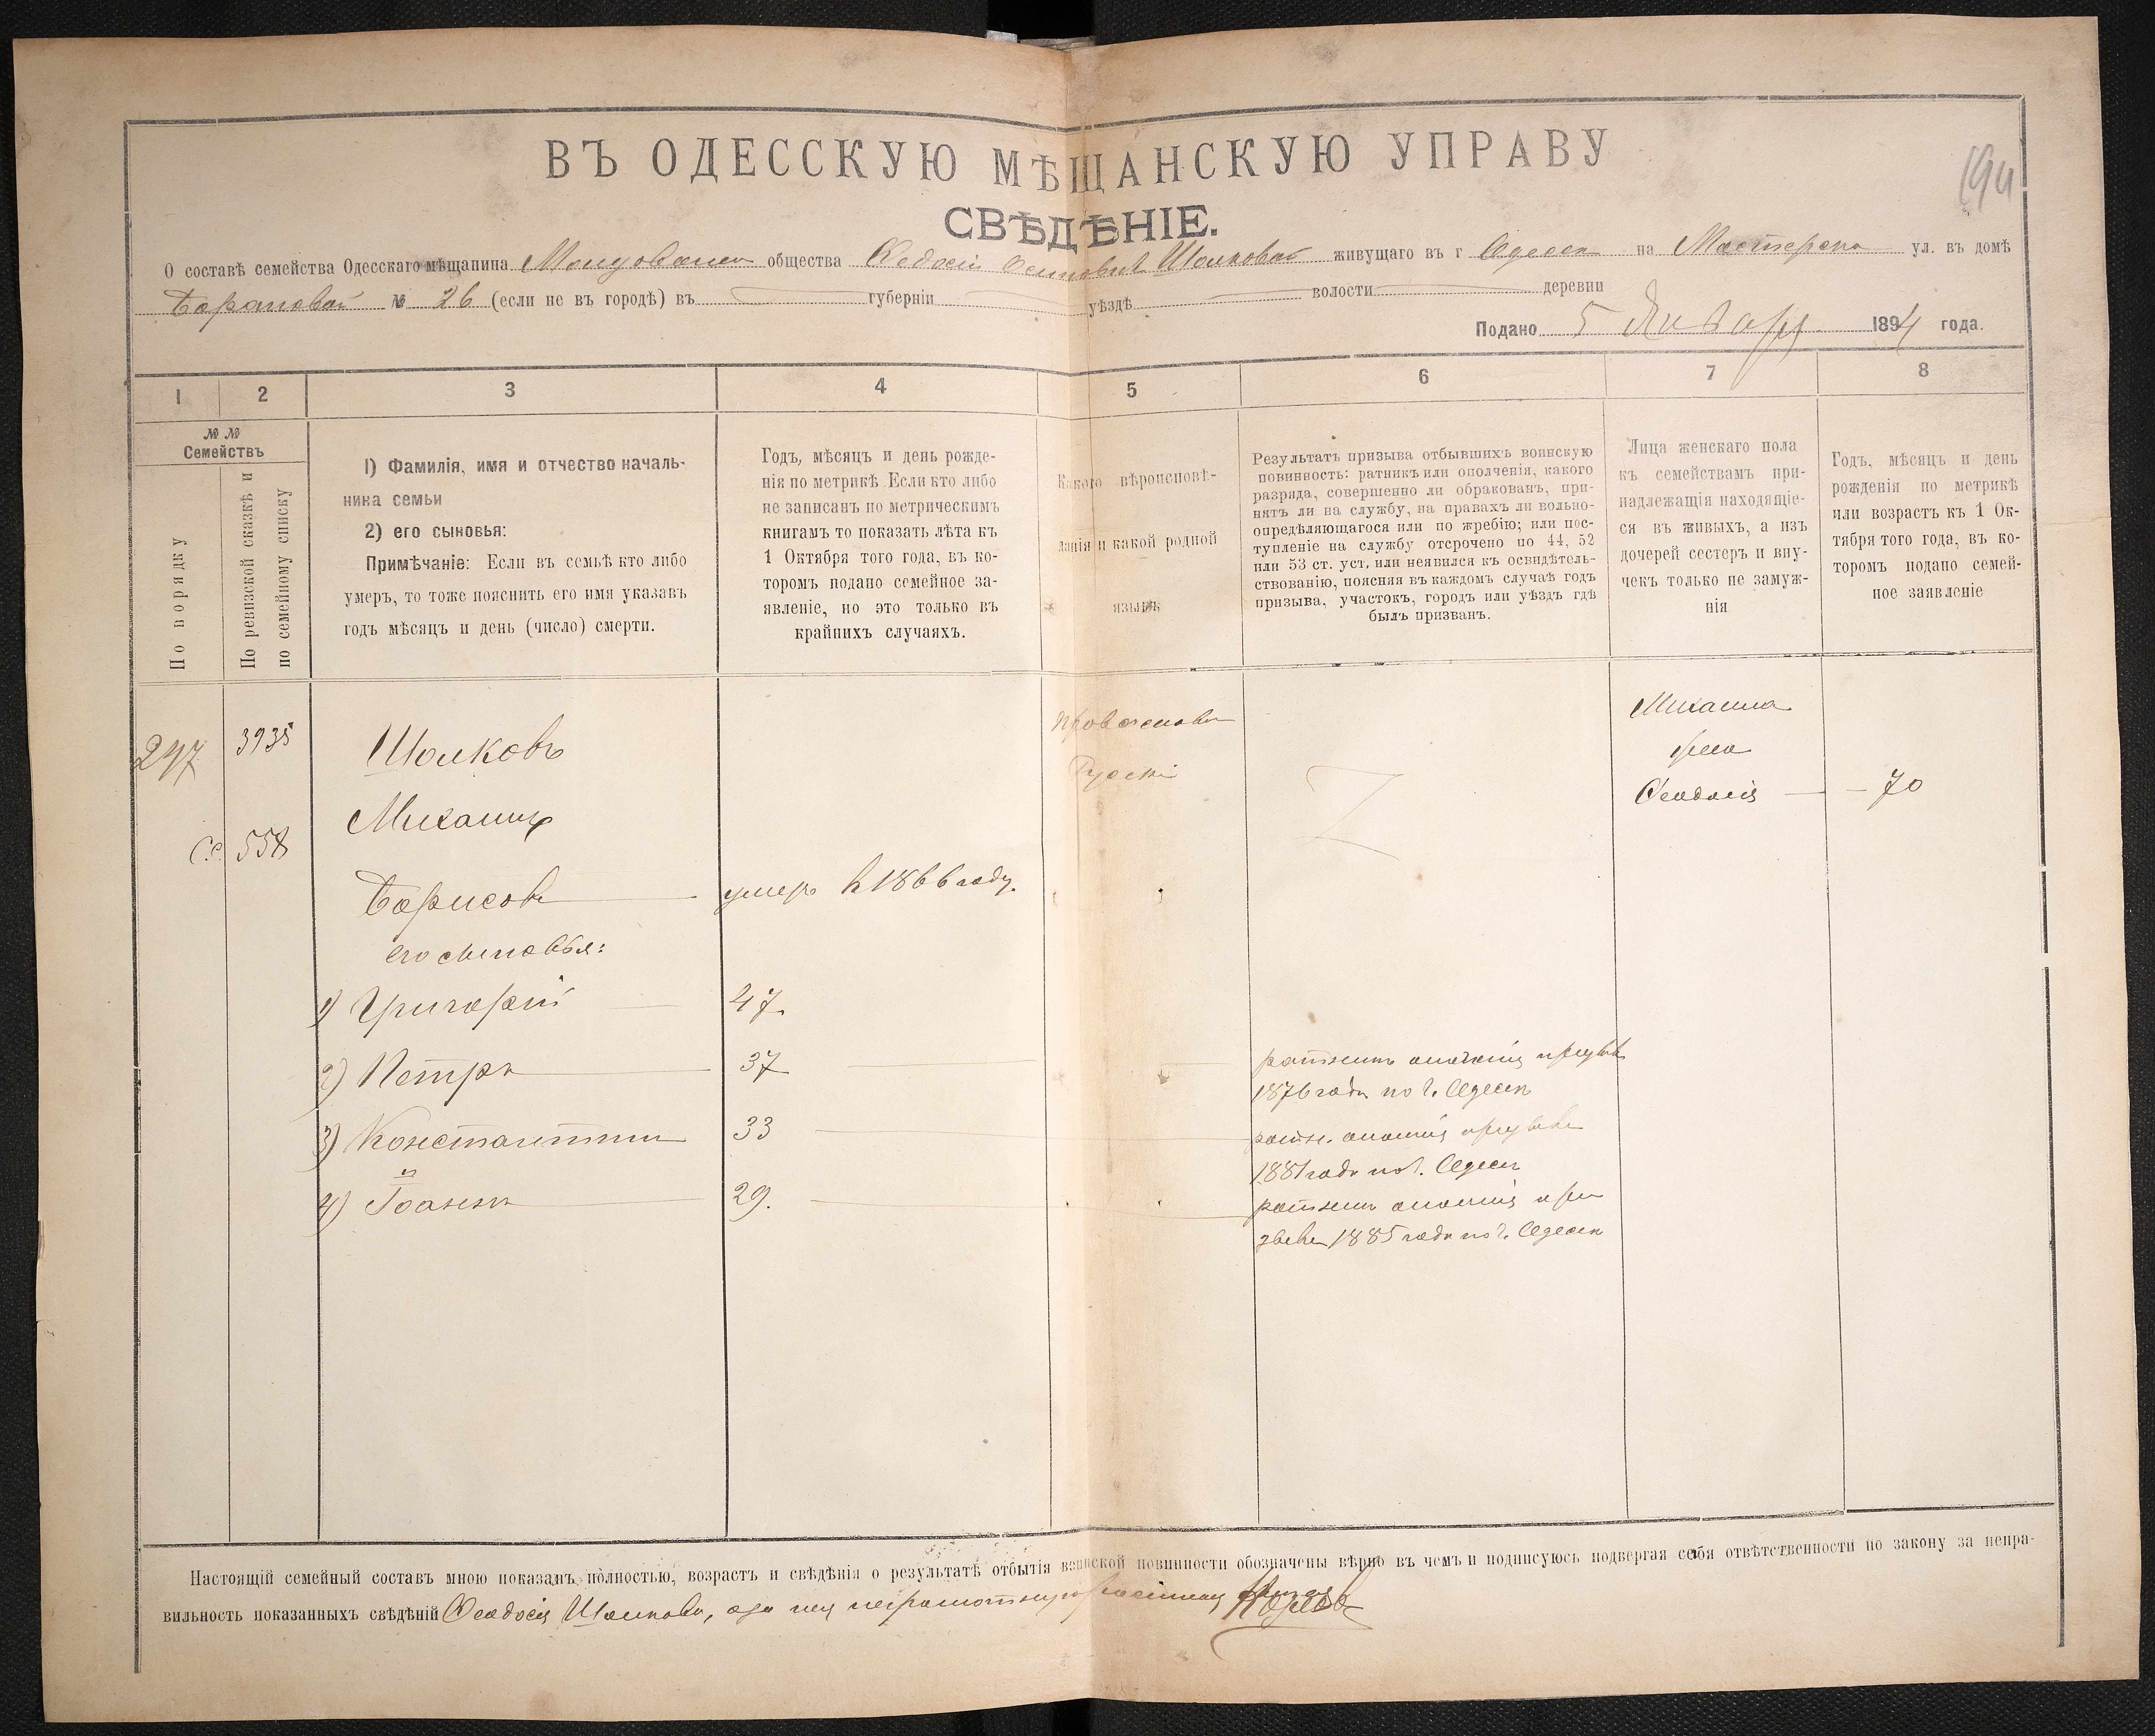 194
ВЪ ОДЕССКУЮ МѢЩАНСКУЮ УПРАВУ
СВѢДѢНІЕ.
О составѣ семейства Одесскаго мѣщанина общества Шолковой живущаго въ г Одессѣ на ул. въ домѣ
№ 26 (если не въ городѣ) въ губерніи уѣздѣ волости деревни
Подано 5 Января 1894 года.
1 2 3 4 5 6 7 8
№ №
Семействъ
По порядку
По ревизской сказкѣ и
по семейному списку
1) Фамилія, имя и отчество началь-
ника семьи
2) его сыновья:
Примѣчаніе: Если въ семьѣ кто либо
умеръ, то тоже пояснить его имя указавъ
годъ мѣсяцъ и день (число) смерти.
Годъ, мѣсяцъ и день рожде-
нія по метрикѣ Если кто либо
не записанъ по метрическимъ
книгамъ то показать лѣта къ
1 Октября того года, въ ко-
торомъ подано семейное за-
явленіе, но это только въ
крайнихъ случаяхъ.
Какого вѣроисповѣ-
данія и какой родной
языкъ
Результатъ призыва отбывшихъ воинскую
повинность: ратникъ или ополченія, какого
разряда, совершенно ли обракованъ, при-
нятъ ли на службу, на правахъ ли вольно-
опредѣляющагося или по жребію; или пос-
тупленіе на службу отсрочено по 44, 52
или 53 ст. уст. или неявился къ освидѣтель-
ствованію, поясняя въ каждомъ случаѣ годъ
призыва, участокъ, городъ или уѣздъ гдѣ
былъ призванъ.
Лица женскаго пола
къ семействамъ при-
надлежащія находящіе-
ся въ живыхъ, а изъ
дочерей сестеръ и вну-
чекъ только не замуж-
нія
Годъ, мѣсяцъ и день
рожденія по метрикѣ
или возрастъ къ 1 Ок-
тября того года, въ ко-
торомъ подано семей-
ное заявленіе
297 3935 Шолковъ Православн Михаила
Русскій жена
Михаилъ Ѳеодосія — 70
С.с. 558
Борисовъ умеръ въ 1866 году.
его сыновья:
1) Григорій 47.
2) Петръ 37 ратникъ ополченія призыва
1876 года по г. Одессѣ
3) Константинъ 33 ратн. ополченія призыва
1881 года по г. Одессѣ
и
4) Іоаннъ 29. ратникъ ополченія при
зыва 1885 года по г. Одессѣ
Настоящій семейный составъ мною показанъ полностью, возрастъ и свѣдѣнія о результатѣ отбытія воинской повинности обозначены вѣрно въ чемъ и подписуюсь подвергая себя отвѣтственности по закону за непра-
вильность показанныхъ свѣдѣній Ѳеодосія Шолкова, а за нея неграмотную